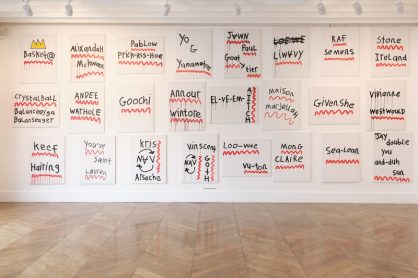 Basket@
Alixandah
McKween
PabLow
PYKK-ASS-Hoe
Yo
G
Yanamahoe
JAWN
Paul
Goat
tier
LOEWE
LIWWVY
RAF
Semens
Stone
IreLand
CrystalBall
Balanceeiga
Balanseeger
ANDEE
WARHOLE
Goochi
Annour
Wintore
EL-VE-EM-
AITECH
maison
marjellah
GivenShe
Vivienne
Westwould
Keef
Hairing
You've
Saint
Lauren
Kris
NAV
Arsache
Vinsconi
NAV
GOTH
Loo-wee
Vu-ton
MONG
CLAIRE
Sea-Lean
JAY
double
you
and-duh
sun